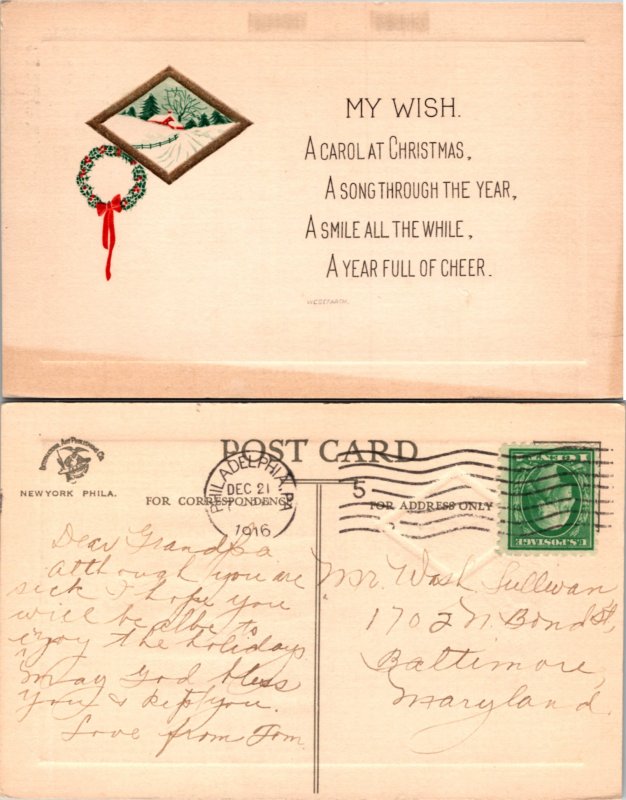 MY WISH.
A CAROL AT CHRISTMAS,
A SONG THROUGH THE YEAR,
A SMILE ALL THE WHILE,
A YEAR FULL OF CHEER.
INTERNATIONAL ART PUBLISHING CO.
NEW YORK PHILA.
POST CARD
FOR CORRESPONDENCE
FOR ADDRESS ONLY
PHILADELPHIA, PA
DEC 21
1916
5
1 CENT 1
U.S. POSTAGE
Dear Grandpa
although you are
sick I hope you
will be albe to
injoy the holidays.
May God bless
you & kept you.
Love from Tom.
Mr. Wash Sullivan
1702 N. Bond St,
Baltimore,
Maryland.